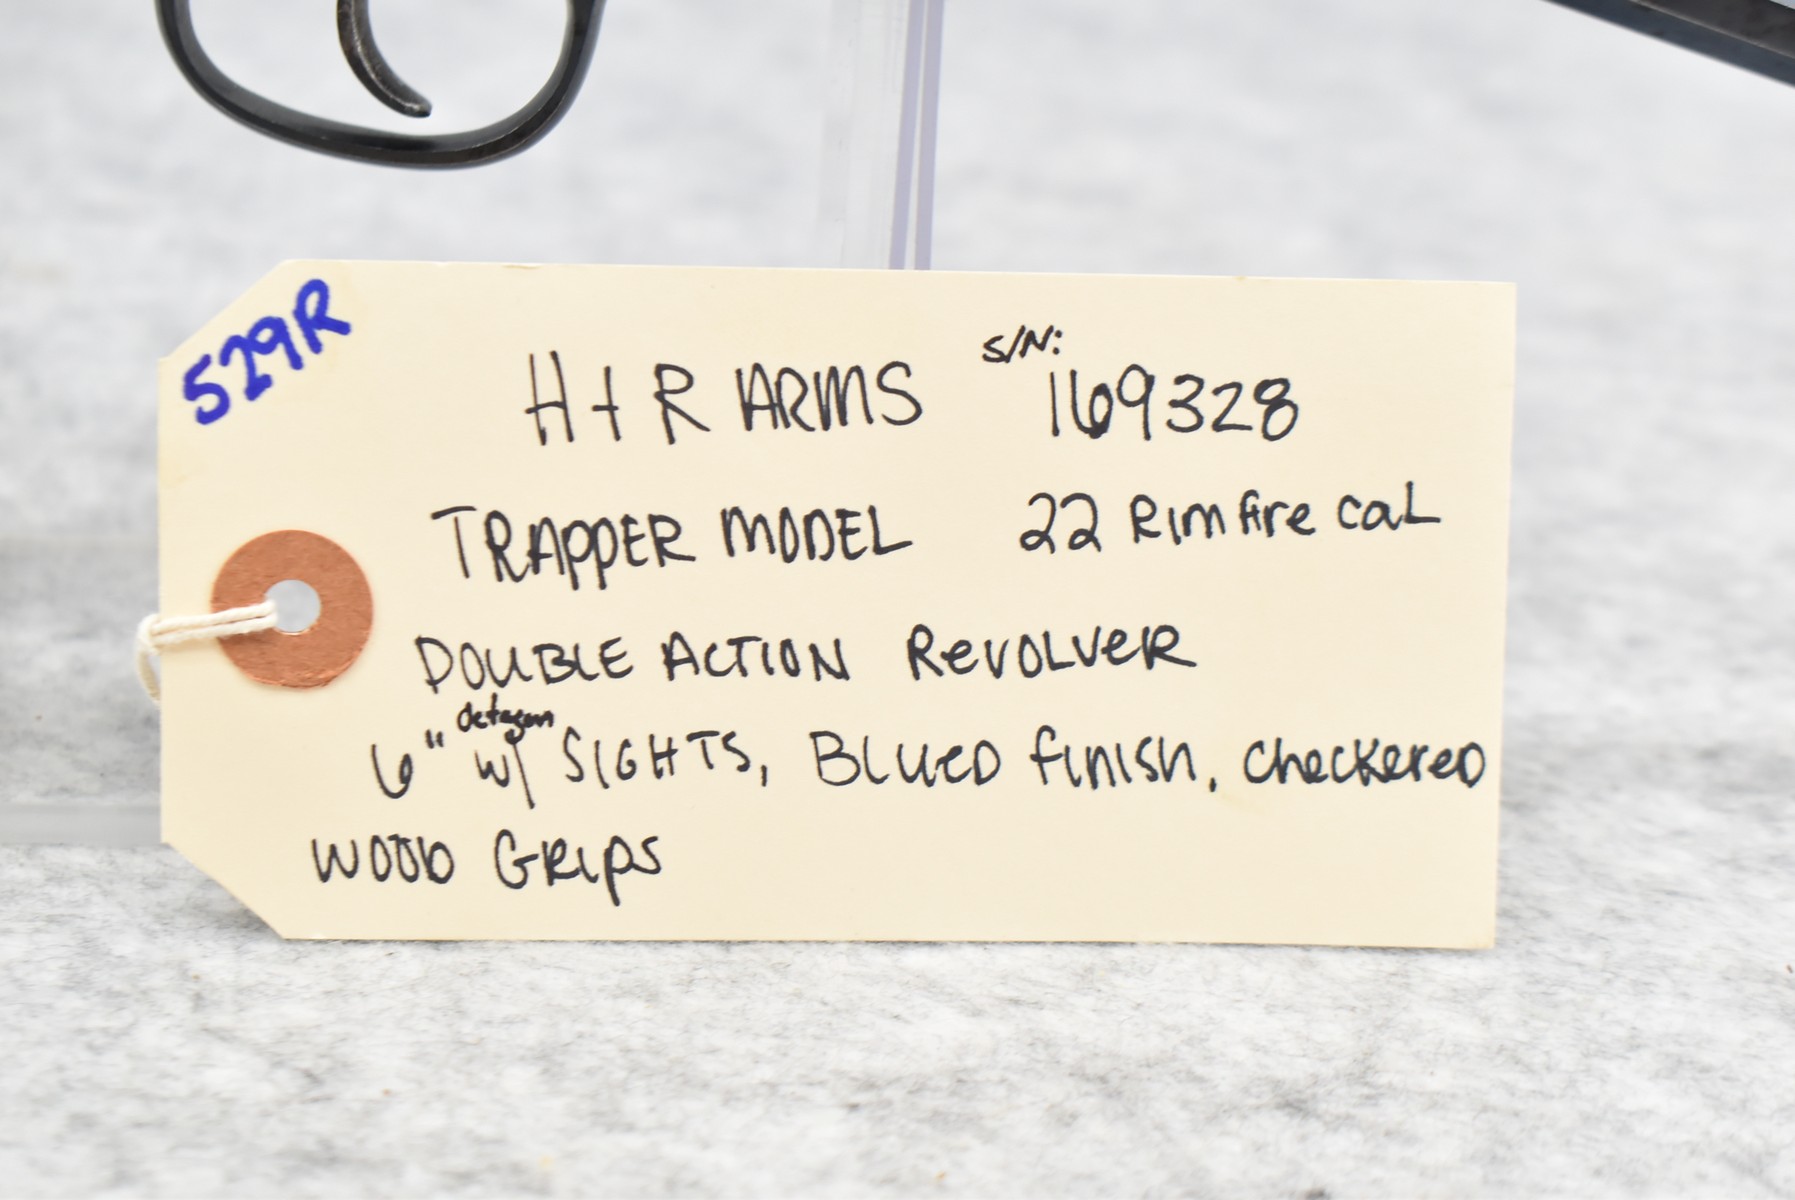 529R
H + R ARMS S/N: 169328
TRAPPER MODEL 22 Rimfire cal
DOUBLE ACTION REVOLVER
octagon
6" w/ SIGHTS, BLUED finish, checkered
WOOD GRIPS